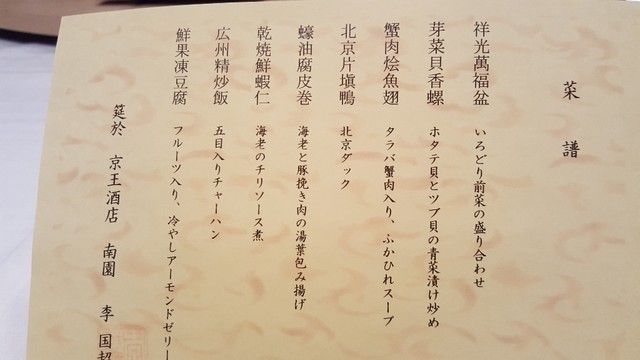 菜譜
祥光萬福盆 いろどり前菜の盛り合わせ
芽菜貝香螺 ホタテ貝とツブ貝の青菜漬け炒め
蟹肉烩魚翅 タラバ蟹肉入り、ふかひれスープ
北京片塡鴨 北京ダック
蠔油腐皮巻 海老と豚挽き肉の湯葉包み揚げ
乾焼鮮蝦仁 海老のチリソース煮
広州精炒飯 五目入りチャーハン
鮮果凍豆腐 フルーツ入り、冷やしアーモンドゼリー
筵於 京王酒店 南園 李 国超